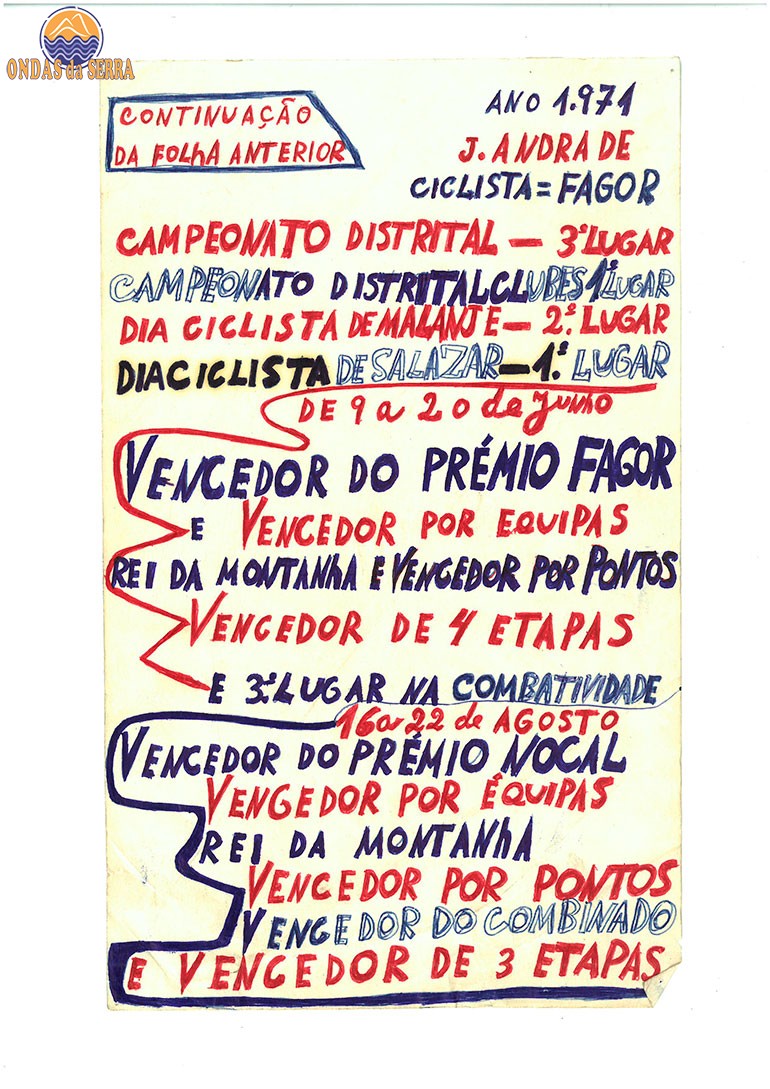 ONDAS da SERRA
CONTINUAÇÃO
DA FOLHA ANTERIOR
ANO 1.971
J. ANDRADE
CICLISTA = FAGOR
CAMPEONATO DISTRITAL — 3º LUGAR
CAMPEONATO DISTRITAL CLUBES 1º LUGAR
DIA CICLISTA DE MALANJE — 2º. LUGAR
DIA CICLISTA DE SALAZAR — 1.º LUGAR
DE 9 a 20 de JUNHO
VENCEDOR DO PRÉMIO FAGOR
E VENCEDOR POR EQUIPAS
REI DA MONTANHA E VENCEDOR POR PONTOS
VENCEDOR DE 4 ETAPAS
E 3º. LUGAR NA COMBATIVIDADE
16 a 22 de AGOSTO
VENCEDOR DO PRÉMIO NOCAL
VENGEDOR POR ÉQUIPAS
REI DA MONTANHA
VENCEDOR POR PONTOS
VENCEDOR DO COMBINADO
E VENCEDOR DE 3 ETAPAS